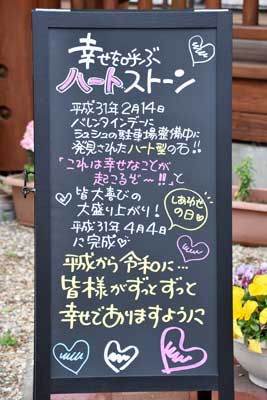 幸せを呼ぶ
ハートストーン
平成31年2月14日
バレンタインデーに
シュシュの駐車場整備中に
発見されたハート型の石!!
「これは幸せなことが
起こるぞ〜!!」と
皆大喜びの
大盛り上がり!
しあわせ
の日
平成31年4月4日
に完成♡
平成から令和に…
皆様がずっとずっと
幸せでありますように